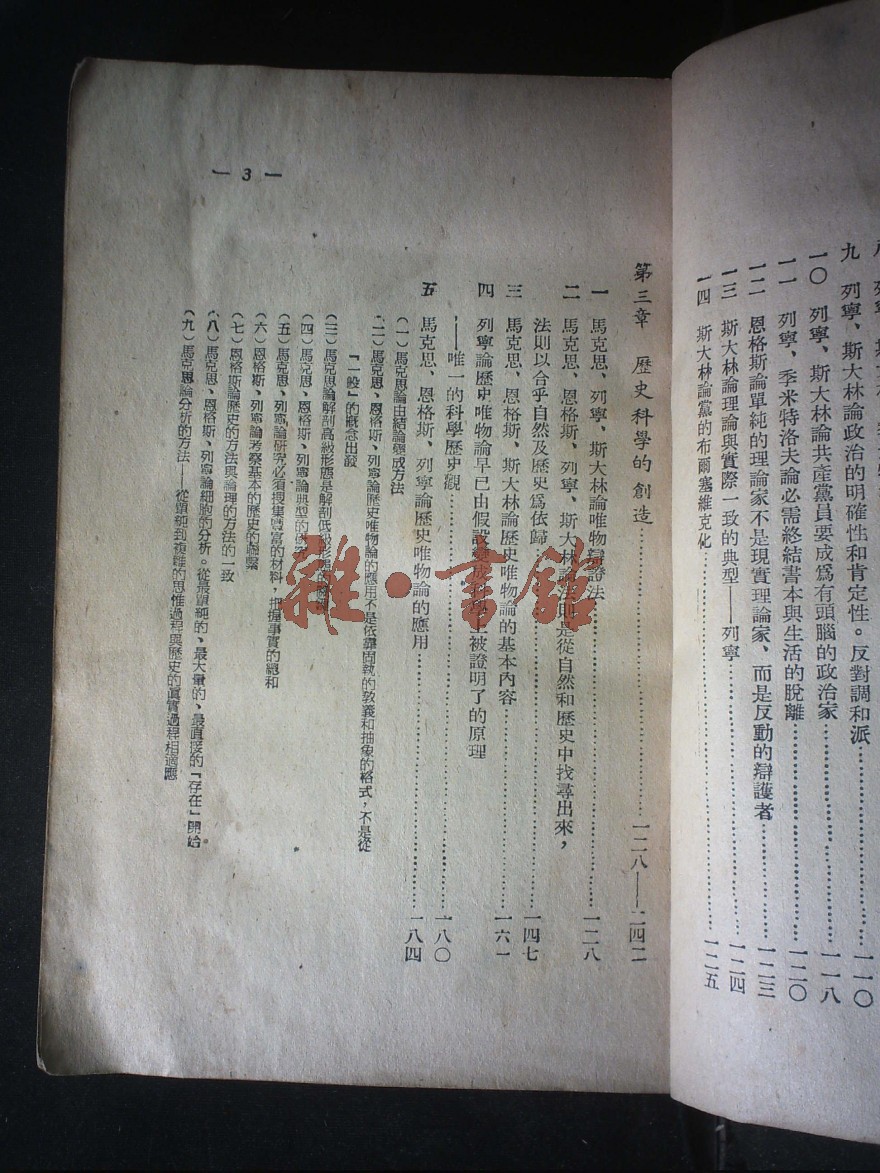 九 列寧、斯大林論政治的明確性和肯定性。反對調和派……一一〇
一〇 列寧、斯大林論共產黨員要成爲有頭腦的政治家……一一八
一一 列寧、季米特洛夫論必需終結書本與生活的脫離……一二〇
一二 恩格斯論單純的理論家不是現實理論家、而是反動的辯護者……一二三
一三 斯大林論理論與實際一致的典型——列寧……一二四
一四 斯大林論黨的布爾塞維克化……一二五
第三章 歷史科學的創造……一二八——二四二
一 馬克思、列寧、斯大林論唯物辯證法……一二八
二 馬克思、恩格斯、列寧、斯大林論法則是從自然和歷史中找尋出來，
法則以合乎自然及歷史爲依歸……一四七
三 馬克思、恩格斯、斯大林論歷史唯物論的基本內容……一六一
四 列寧論歷史唯物論早已由假設變成科學上被證明了的原理
——唯一的科學歷史觀……一八〇
五 馬克思、恩格斯、列寧論歷史唯物論的應用……一八四
（一）馬克思論由結論變成方法
（二）馬克思、恩格斯、列寧論歷史唯物論的應用不是依靠固執的教義和抽象的格式，不是從
『一般』的概念出發
（三）馬克思論解剖高級形態是解剖低級形態的
（四）馬克思、恩格斯、列寧論典型的研究
（五）馬克思、列寧論研究必須搜集豐富的材料，把握事實的總和
（六）恩格斯、列寧論考察基本的歷史的聯繫
（七）恩格斯論歷史的方法與論理的方法的一致
（八）馬克思、恩格斯、列寧論細胞的分析。從最單純的、最大量的、最直接的『存在』開始
（九）馬克思論分析的方法——從單純到複雜的思惟過程與歷史的眞實過程相適應
— 3 —
雜·書館